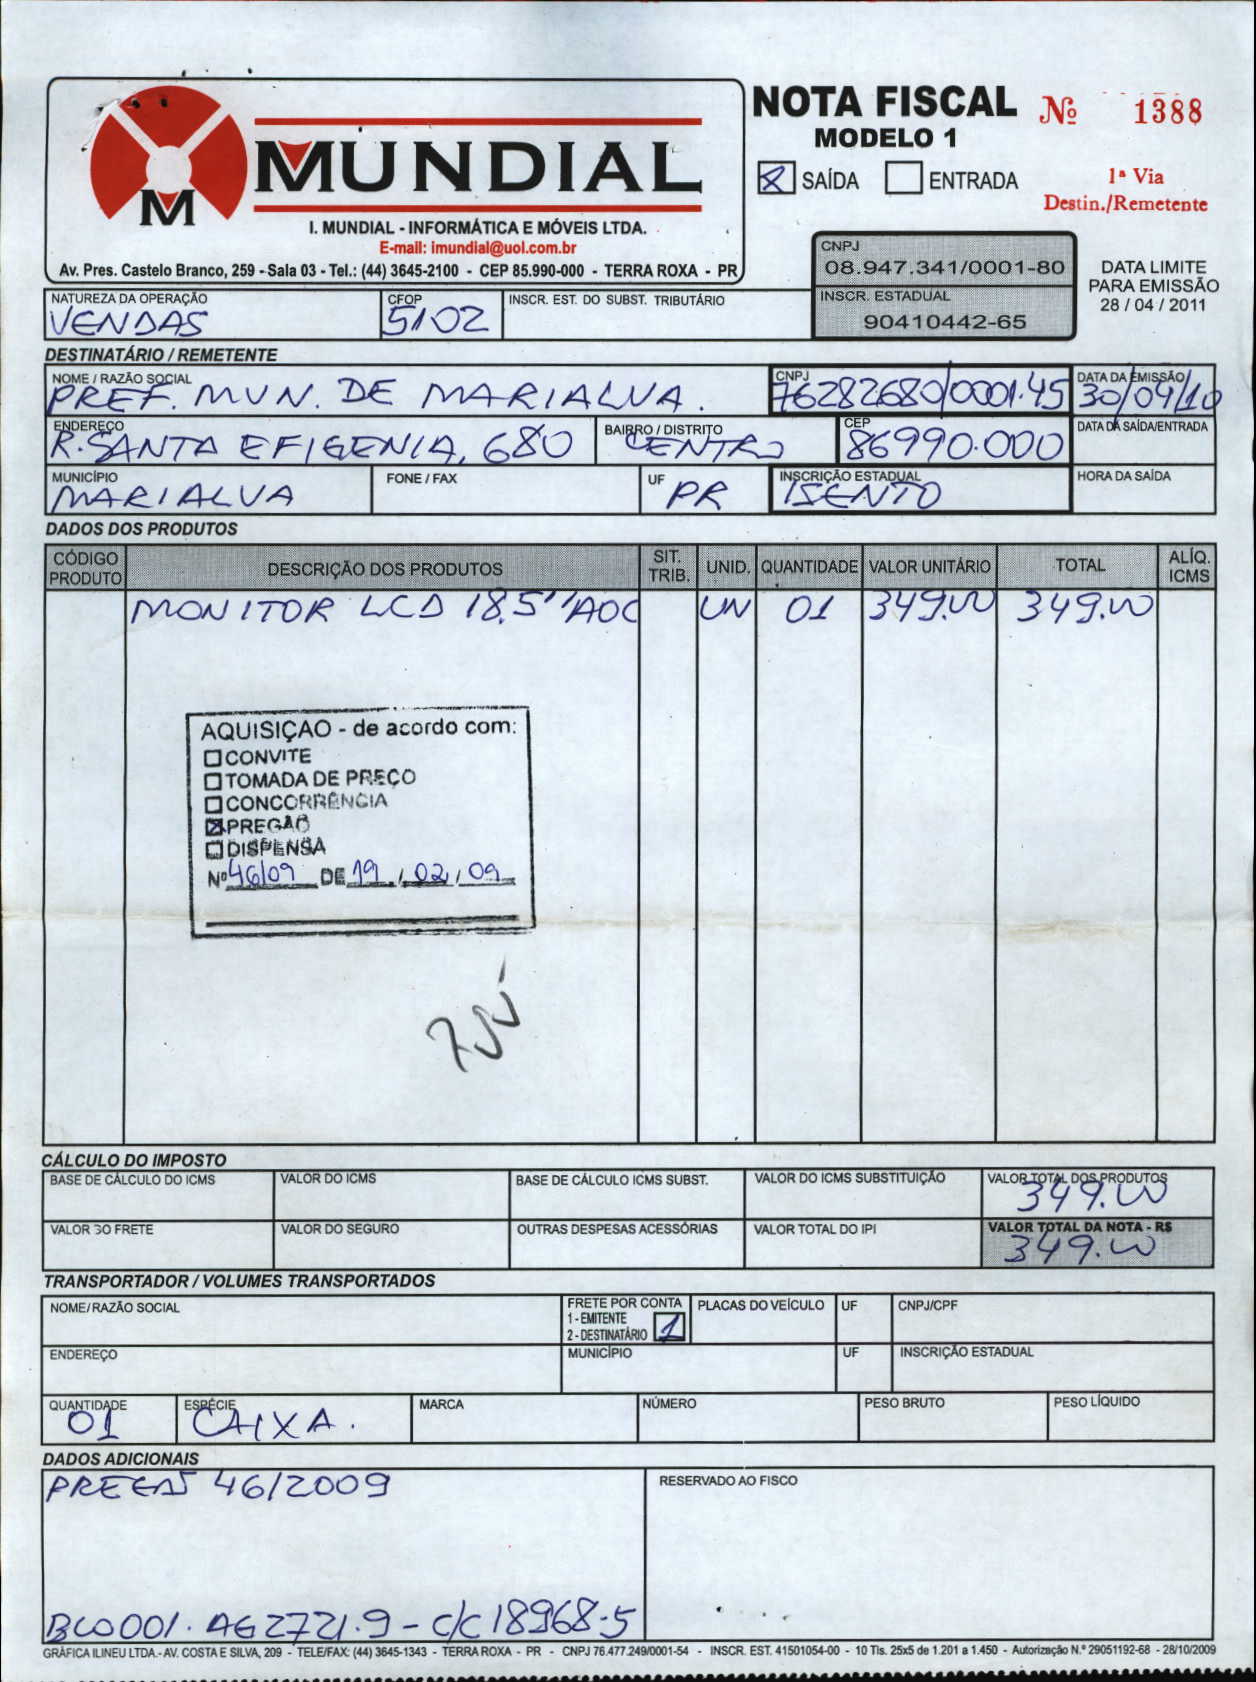 MUNDIAL
M
I. MUNDIAL - INFORMÁTICA E MÓVEIS LTDA.
E-mail: imundial@uol.com.br
Av. Pres. Castelo Branco, 259 - Sala 03 - Tel.: (44) 3645-2100 - CEP 85.990-000 - TERRA ROXA - PR
NOTA FISCAL Nº 1388
MODELO 1
X SAÍDA ENTRADA
1ª Via
Destin./Remetente
CNPJ
08.947.341/0001-80
INSCR. ESTADUAL
90410442-65
DATA LIMITE
PARA EMISSÃO
28 / 04 / 2011
NATUREZA DA OPERAÇÃO CFOP INSCR. EST. DO SUBST. TRIBUTÁRIO
VENDAS 5102
DESTINATÁRIO / REMETENTE
NOME / RAZÃO SOCIAL CNPJ DATA DA EMISSÃO
PREF. MUN. DE MARIALVA. 76282680/0001-45 30/04/10
ENDEREÇO BAIRRO / DISTRITO CEP DATA DA SAÍDA/ENTRADA
R. SANTA EFIGENIA, 680 CENTRO 86990.000
MUNICÍPIO FONE / FAX UF INSCRIÇÃO ESTADUAL HORA DA SAÍDA
MARIALVA PR ISENTO
DADOS DOS PRODUTOS
CÓDIGO PRODUTO DESCRIÇÃO DOS PRODUTOS SIT. TRIB. UNID. QUANTIDADE VALOR UNITÁRIO TOTAL ALÍQ. ICMS
MONITOR LCD 18.5'' AOC UN 01 349.00 349.00
AQUISIÇAO - de acordo com:
CONVITE
TOMADA DE PREÇO
CONCORRÊNCIA
X PREGÃO
DISPENSA
Nº 46/09 DE 19 / 02 / 09
CÁLCULO DO IMPOSTO
BASE DE CÁLCULO DO ICMS VALOR DO ICMS BASE DE CÁLCULO ICMS SUBST. VALOR DO ICMS SUBSTITUIÇÃO VALOR TOTAL DOS PRODUTOS
349.00
VALOR DO FRETE VALOR DO SEGURO OUTRAS DESPESAS ACESSÓRIAS VALOR TOTAL DO IPI VALOR TOTAL DA NOTA - R$
349.00
TRANSPORTADOR / VOLUMES TRANSPORTADOS
NOME/RAZÃO SOCIAL FRETE POR CONTA PLACAS DO VEÍCULO UF CNPJ/CPF
1 - EMITENTE
2 - DESTINATÁRIO 1
ENDEREÇO MUNICÍPIO UF INSCRIÇÃO ESTADUAL
QUANTIDADE ESPÉCIE MARCA NÚMERO PESO BRUTO PESO LÍQUIDO
01 CAIXA.
DADOS ADICIONAIS
RESERVADO AO FISCO
46/2009
BCO001. AG2721.9 - C/C 18968-5
GRÁFICA ILINEU LTDA.- AV. COSTA E SILVA, 209 - TELE/FAX: (44) 3645-1343 - TERRA ROXA - PR - CNPJ 76.477.249/0001-54 - INSCR. EST. 41501054-00 - 10 Tls. 25x5 de 1.201 a 1.450 - Autorização N.º 29051192-68 - 28/10/2009